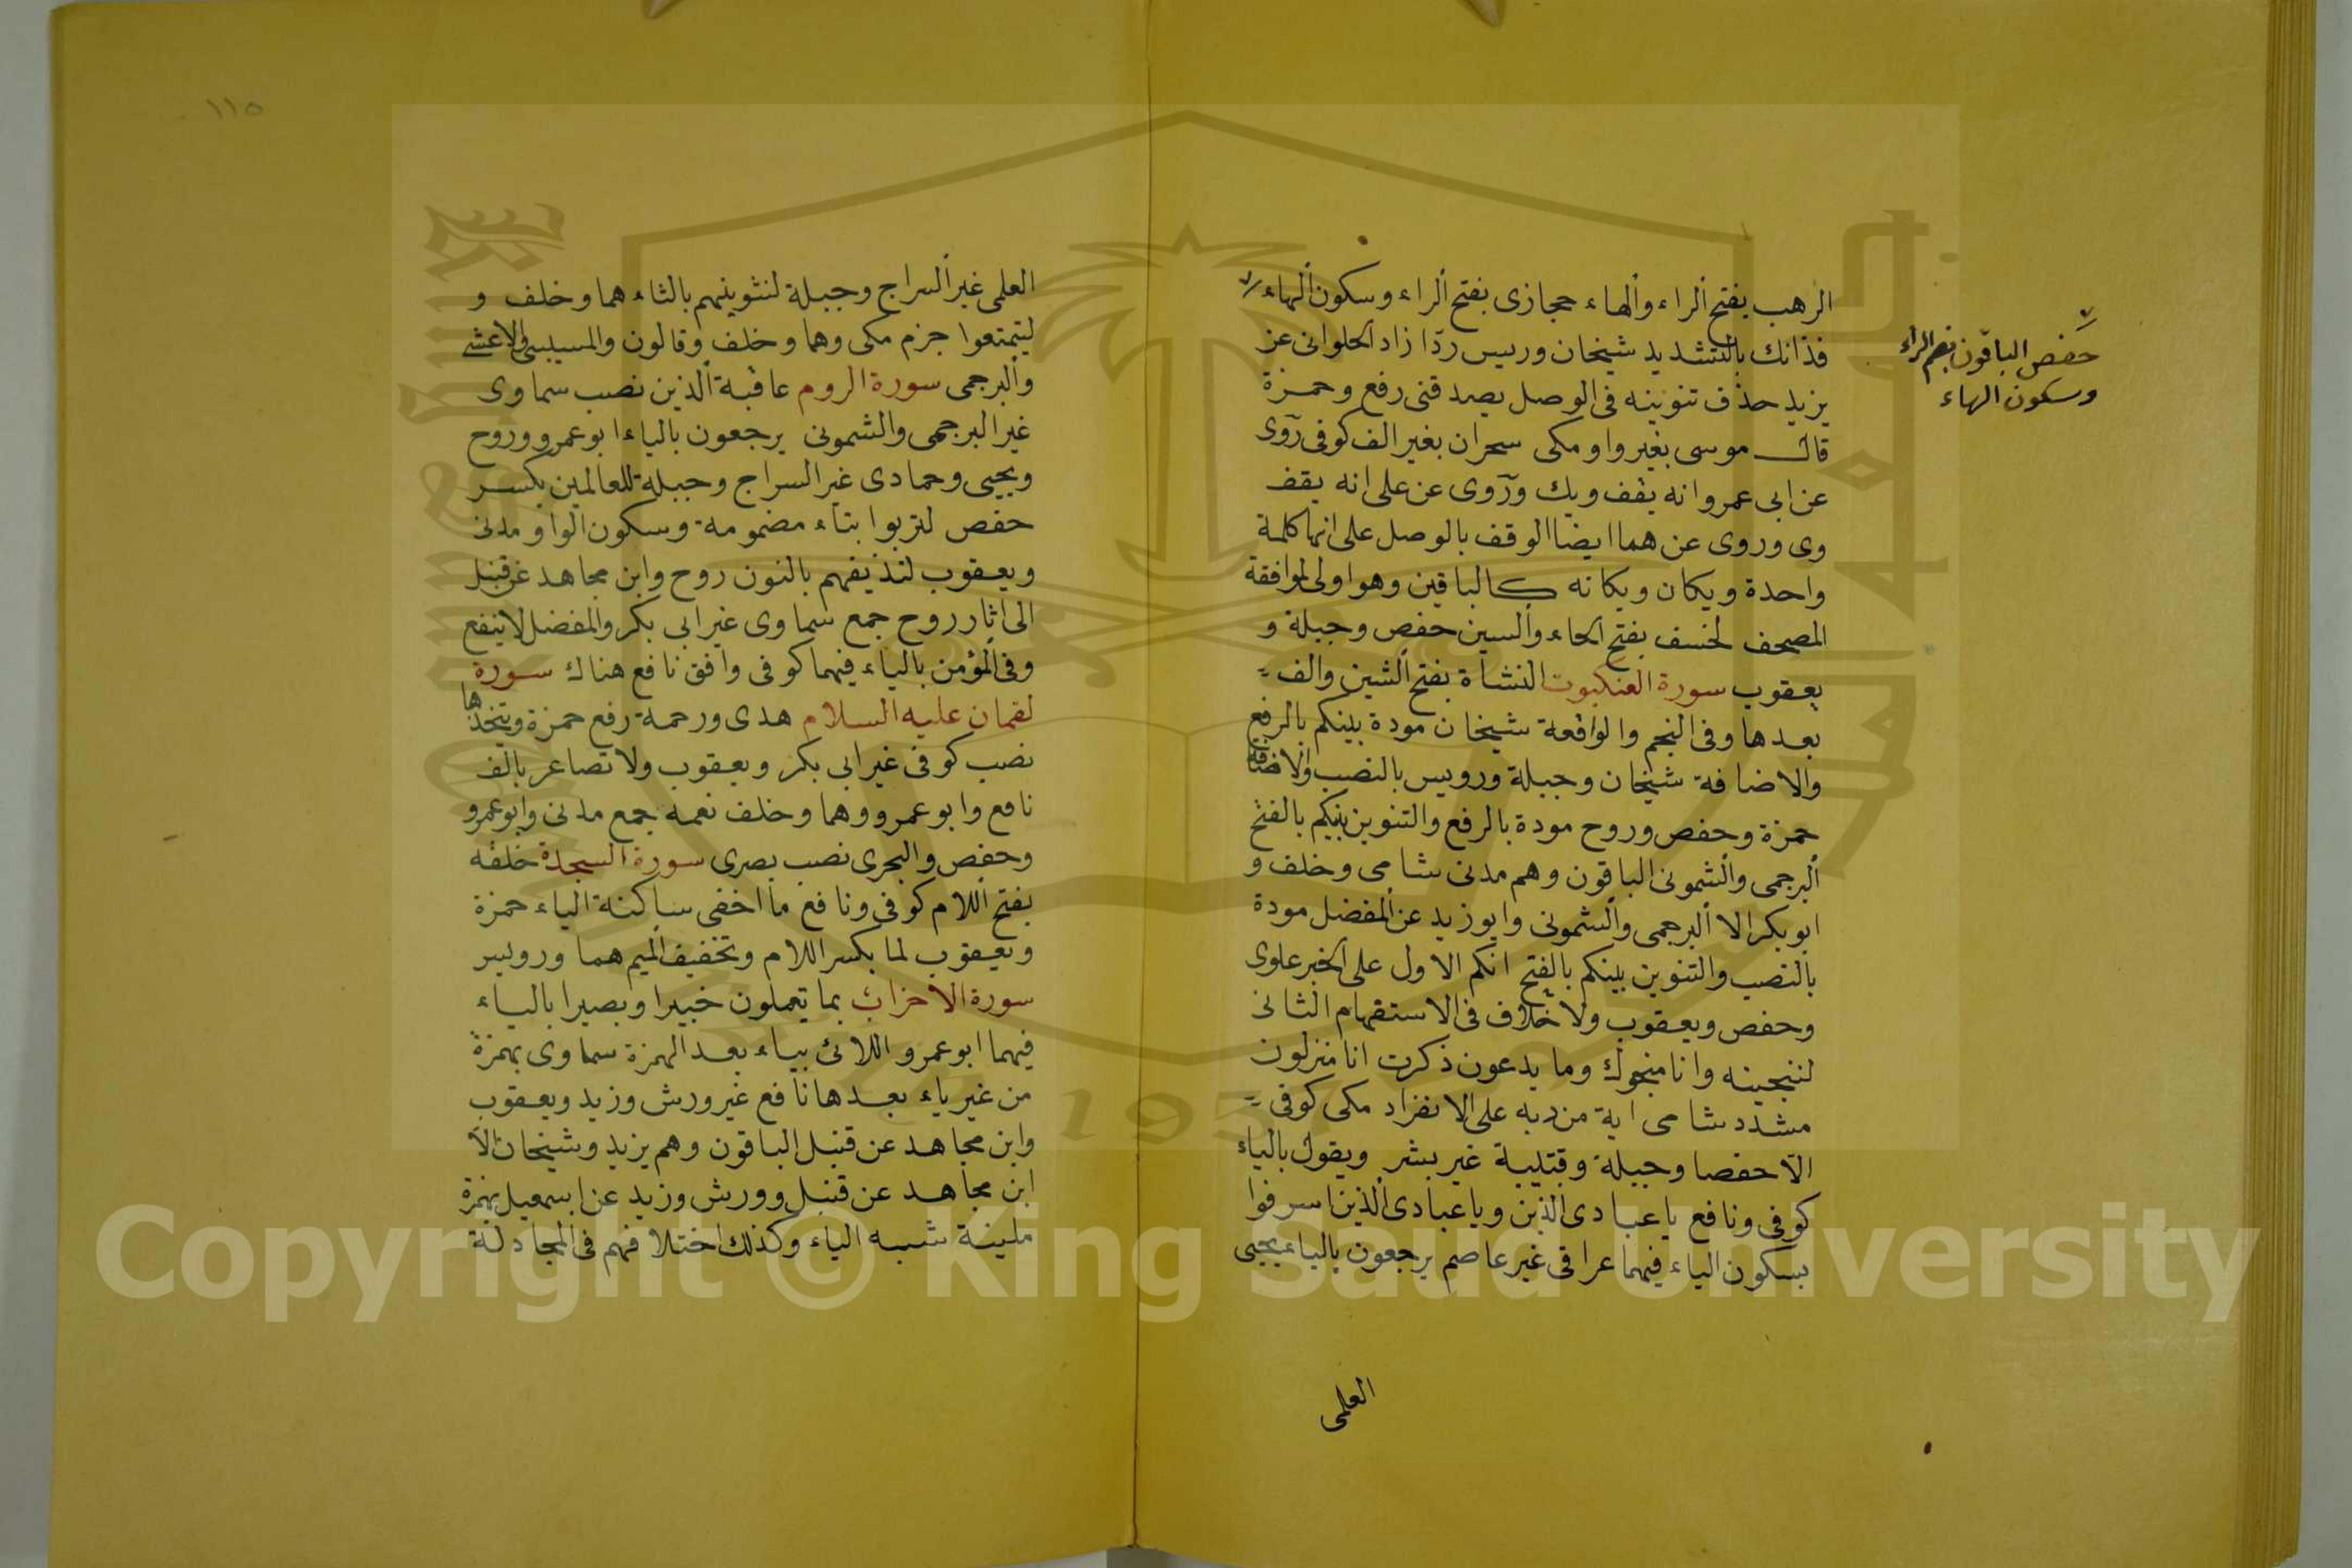 الرهب بفتح الراء والهاء حجازى بفتح الراء وسكون الهاء
حفص الباقون بضم الراء
وسكون الهاء
فذانك بالتشديد شيخان ورييس ردّا زاد الحلوانى عن
يزيد حذف تنوينه فى الوصل يصدقنى رفع وحمزة
قال موسى بغير واو مكى سحران بغير الف كوفى روى
عن ابى عمرو انه يقف ويك وروى عن على انه يقف
وى وروى عن هما ايضا الوقف بالوصل على انها كلمة
واحدة ويكان ويكانه كالباقين وهو اولى لموافقة
المصحف لخسف بفتح الحاء والسين حفص وجبلة و
يعقوب سورة العنكبوت النشاة بفتح الشين والف
بعدها وفى النجم والواقعة شيخان مودة بينكم بالرفع
والاضافة شيخان وجبلة ورويس بالنصب والاضافة
حمزة وحفص وروح مودة بالرفع والتنوين بينكم بالفتح
البرجمى والشمونى الباقون وهم مدنى شامى وخلف و
ابو بكر الا البرجمى والشمونى وابو زيد عن المفضل مودة
بالنصب والتنوين بينكم بالفتح انكم الاول على الخبر علوى
وحفص ويعقوب ولا خلاف فى الاستفهام الثانى
لننجينه وانا منجوك وما يدعون ذكرت انا منزلون
مشدد شامى اية من ربه على الانفراد مكى كوفى
الا حفصا وجبلة وقتيبة غير بشر ويقول بالياء
كوفى ونافع يا عبادى الذين ويا عبادى الذين اسرفوا
بسكون الياء فيهما عراقى غير عاصم يرجعون بالياء يحيى
العلمى
١١٥
العلمى غير السراج وجبلة لنثوينهم بالثاء هما وخلف و
ليتمتعوا جزم مكى وهما وخلف وقالون والمسيبى والاعشى
والبرجمى سورة الروم عاقبة الذين نصب سماوى
غير البرجمى والشمونى يرجعون بالياء ابو عمرو وروح
ويحيى وحمادى غير السراج وجبلة للعالمين بكسر
حفص لتربوا بتاء مضمومة وسكون الواو مدنى
ويعقوب لنذيقهم بالنون روح وابن مجاهد عن قنبل
الى اثار روح جمع سماوى غير ابى بكر والمفضل لا ينفع
وفى المؤمن بالياء فيهما كوفى وافق نافع هناك سورة
لقمان عليه السلام هدى ورحمة رفع حمزة ويتخذها
نصب كوفى غير ابى بكر ويعقوب ولا تصاعر بالف
نافع وابو عمرو وهما وخلف نعمه جمع مدنى وابو عمرو
وحفص والبحرى نصب بصرى سورة السجدة خلقه
بفتح اللام كوفى ونافع ما اخفى ساكنة الياء حمزة
ويعقوب لما بكسر اللام وتخفيف الميم هما ورويس
سورة الاحزاب بما تعملون خبيرا وبصيرا بالياء
فيهما ابو عمرو اللائ بياء بعد الهمزة سماوى بهمزة
من غير ياء بعدها نافع غير ورش وزيد ويعقوب
وابن مجاهد عن قنبل الباقون وهم يزيد وشيخان الا
ابن مجاهد عن قنبل وورش وزيد عن اسمعيل بهمزة
ملينة شبه الياء وكذلك اختلافهم فى المجادلة
Copyright © King Saud University